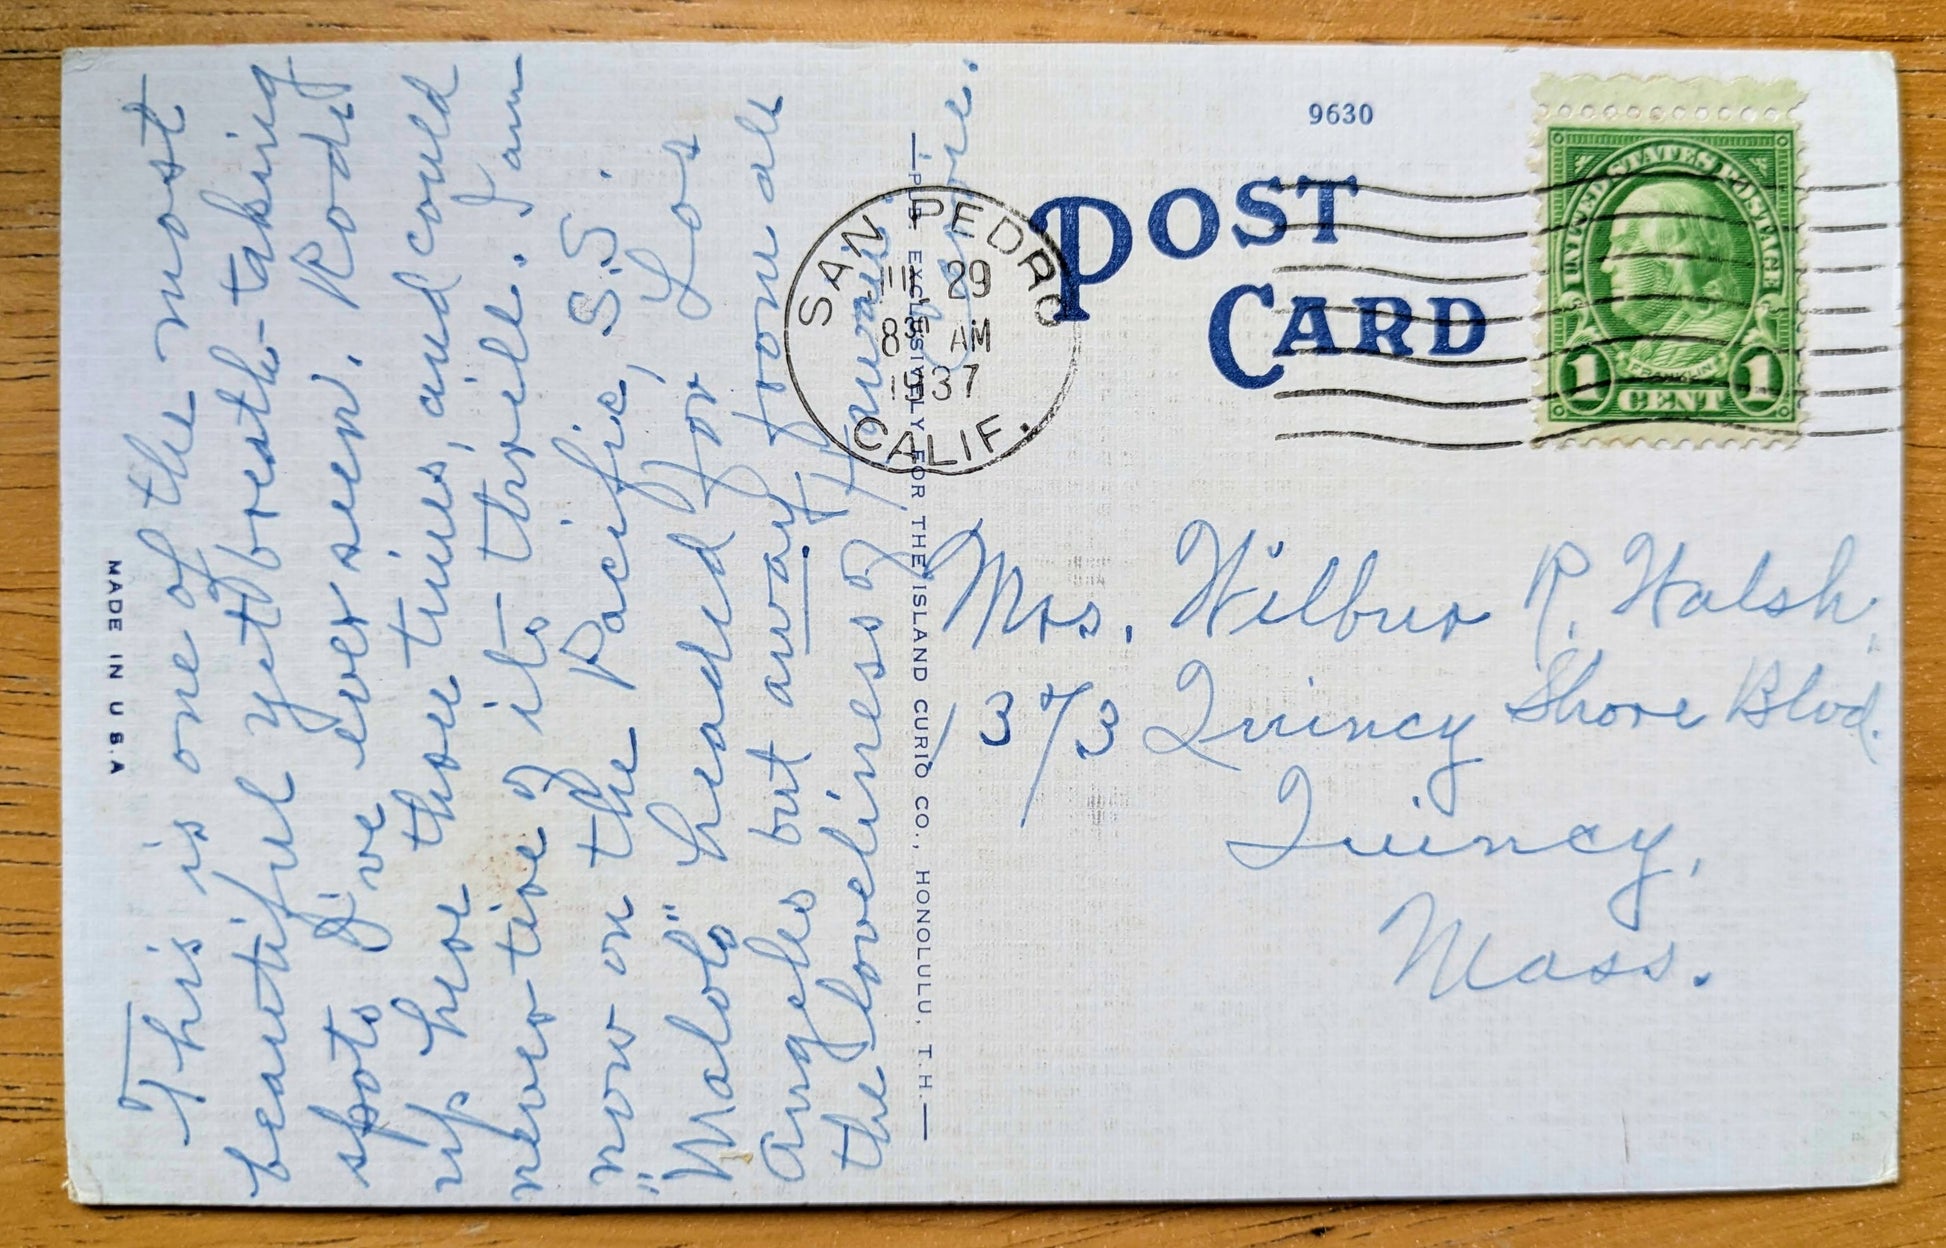 This is one of the most
beautiful yet breath-taking
spots I've ever seen. Rode
up here three times, and could
never tire of its thrill. I am
now on the Pacific, S.S.
"Malolo" headed for Los
Angeles but away from all
the loveliness of Hawaii.
MADE IN U S.A
PUB. EXCLUSIVELY FOR THE ISLAND CURIO CO., HONOLULU, T.H.
9630
POST
CARD
SAN PEDRO
III 29
8 AM
1937
CALIF.
UNITED STATES POSTAGE
FRANKLIN
1 CENT 1
Mrs. Wilbur R. Walsh,
373 Quincy Shore Blvd.
Quincy,
Mass.